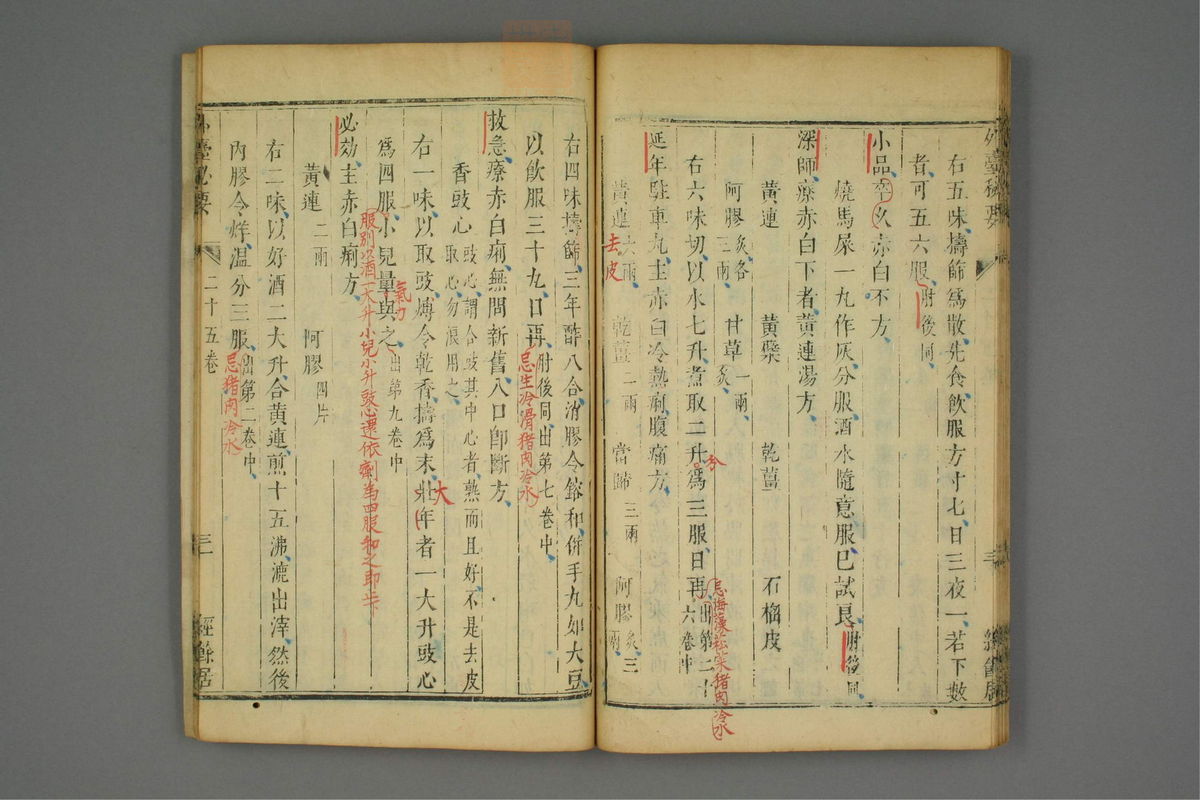 外臺秘要
右五味擣篩為散先食飲服方寸七日三夜一若下數
者可五六服肘後同
小品卒久赤白不方
燒馬屎一丸作灰分服酒水隨意服已試良肘後同
深師療赤白下者黃連湯方
黃連 黃蘗 乾薑 石榴皮
阿膠炙各二兩 甘草一兩炙
右六味切以水七升煮取二升為三服日再出第二十六卷中
分
忌海藻菘菜猪肉冷水
延年駐車丸主赤白冷熱痢腹痛方
黃連六兩 乾薑二兩 當歸三兩 阿膠炙三兩
去皮
右四味擣篩三年酢八合消膠令鎔和併手丸如大豆
以飲服三十丸日再肘後同出第七卷中
忌生冷滑猪肉冷水
救急療赤白痢無問新舊入口即斷方
香豉心豉心謂合豉其中心者熟而且好不是去皮取心勿浪用之
右一味以取豉煿令乾香擣為末壯年者一大升豉心
大
為四服小兒量與之出第九卷中
氣力
服別以酒一大升小兒小升豉還依劑為四服和之即止
必効主赤白痢方
黃連二兩 阿膠四片
右二味以好酒二大升合黃連煎十五沸漉出滓然後
內膠令烊温分三服出第二卷中
忌猪肉冷水
外臺秘要 二十五卷 三 經餘居